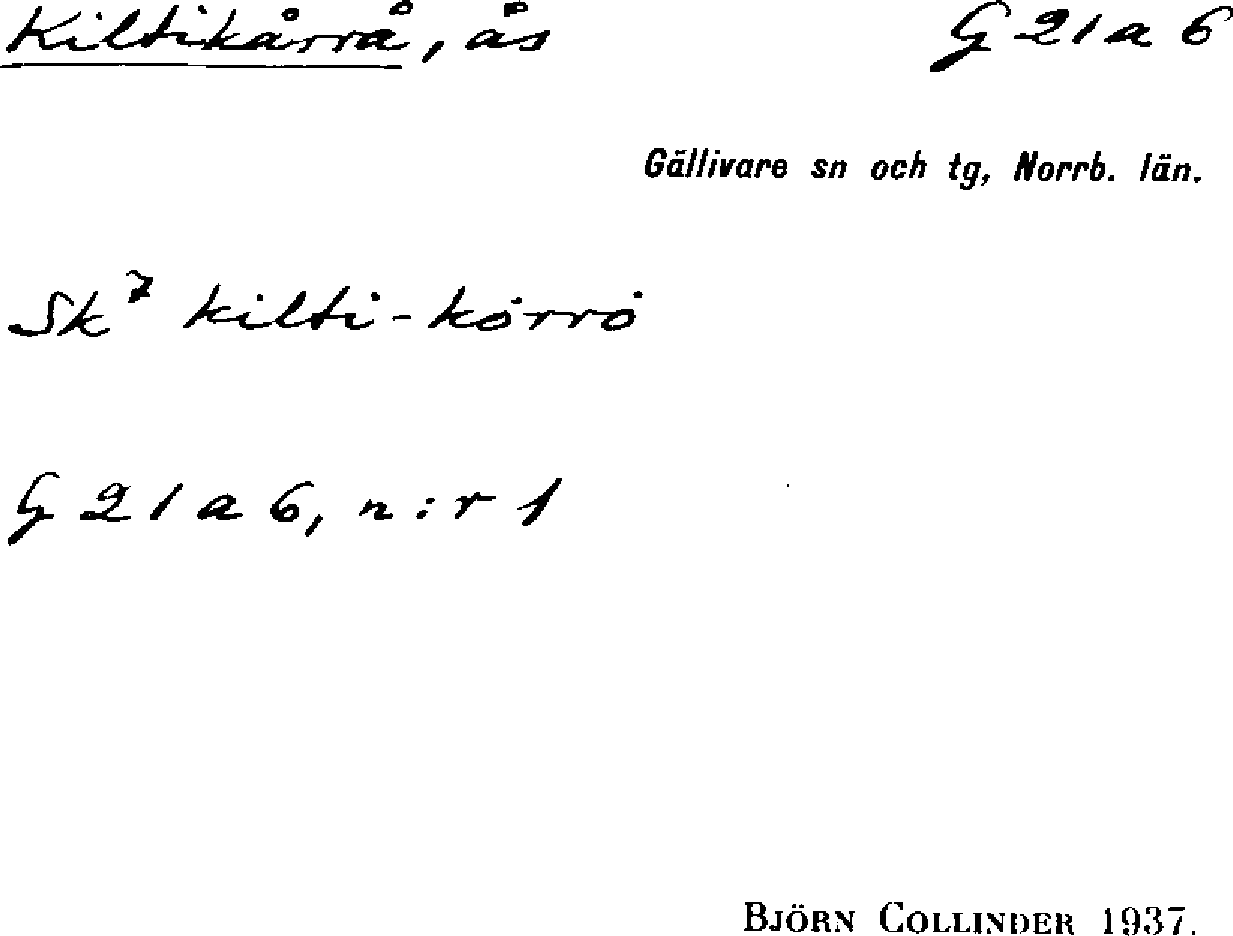 Kiltikårrå, ås G 21 a 6
Gällivare sn och tg, Norrb. län.
Sk⁷ kilti-kȯrrȯ
G 21 a 6, n:r 1
BJÖRN COLLINDER 1937.